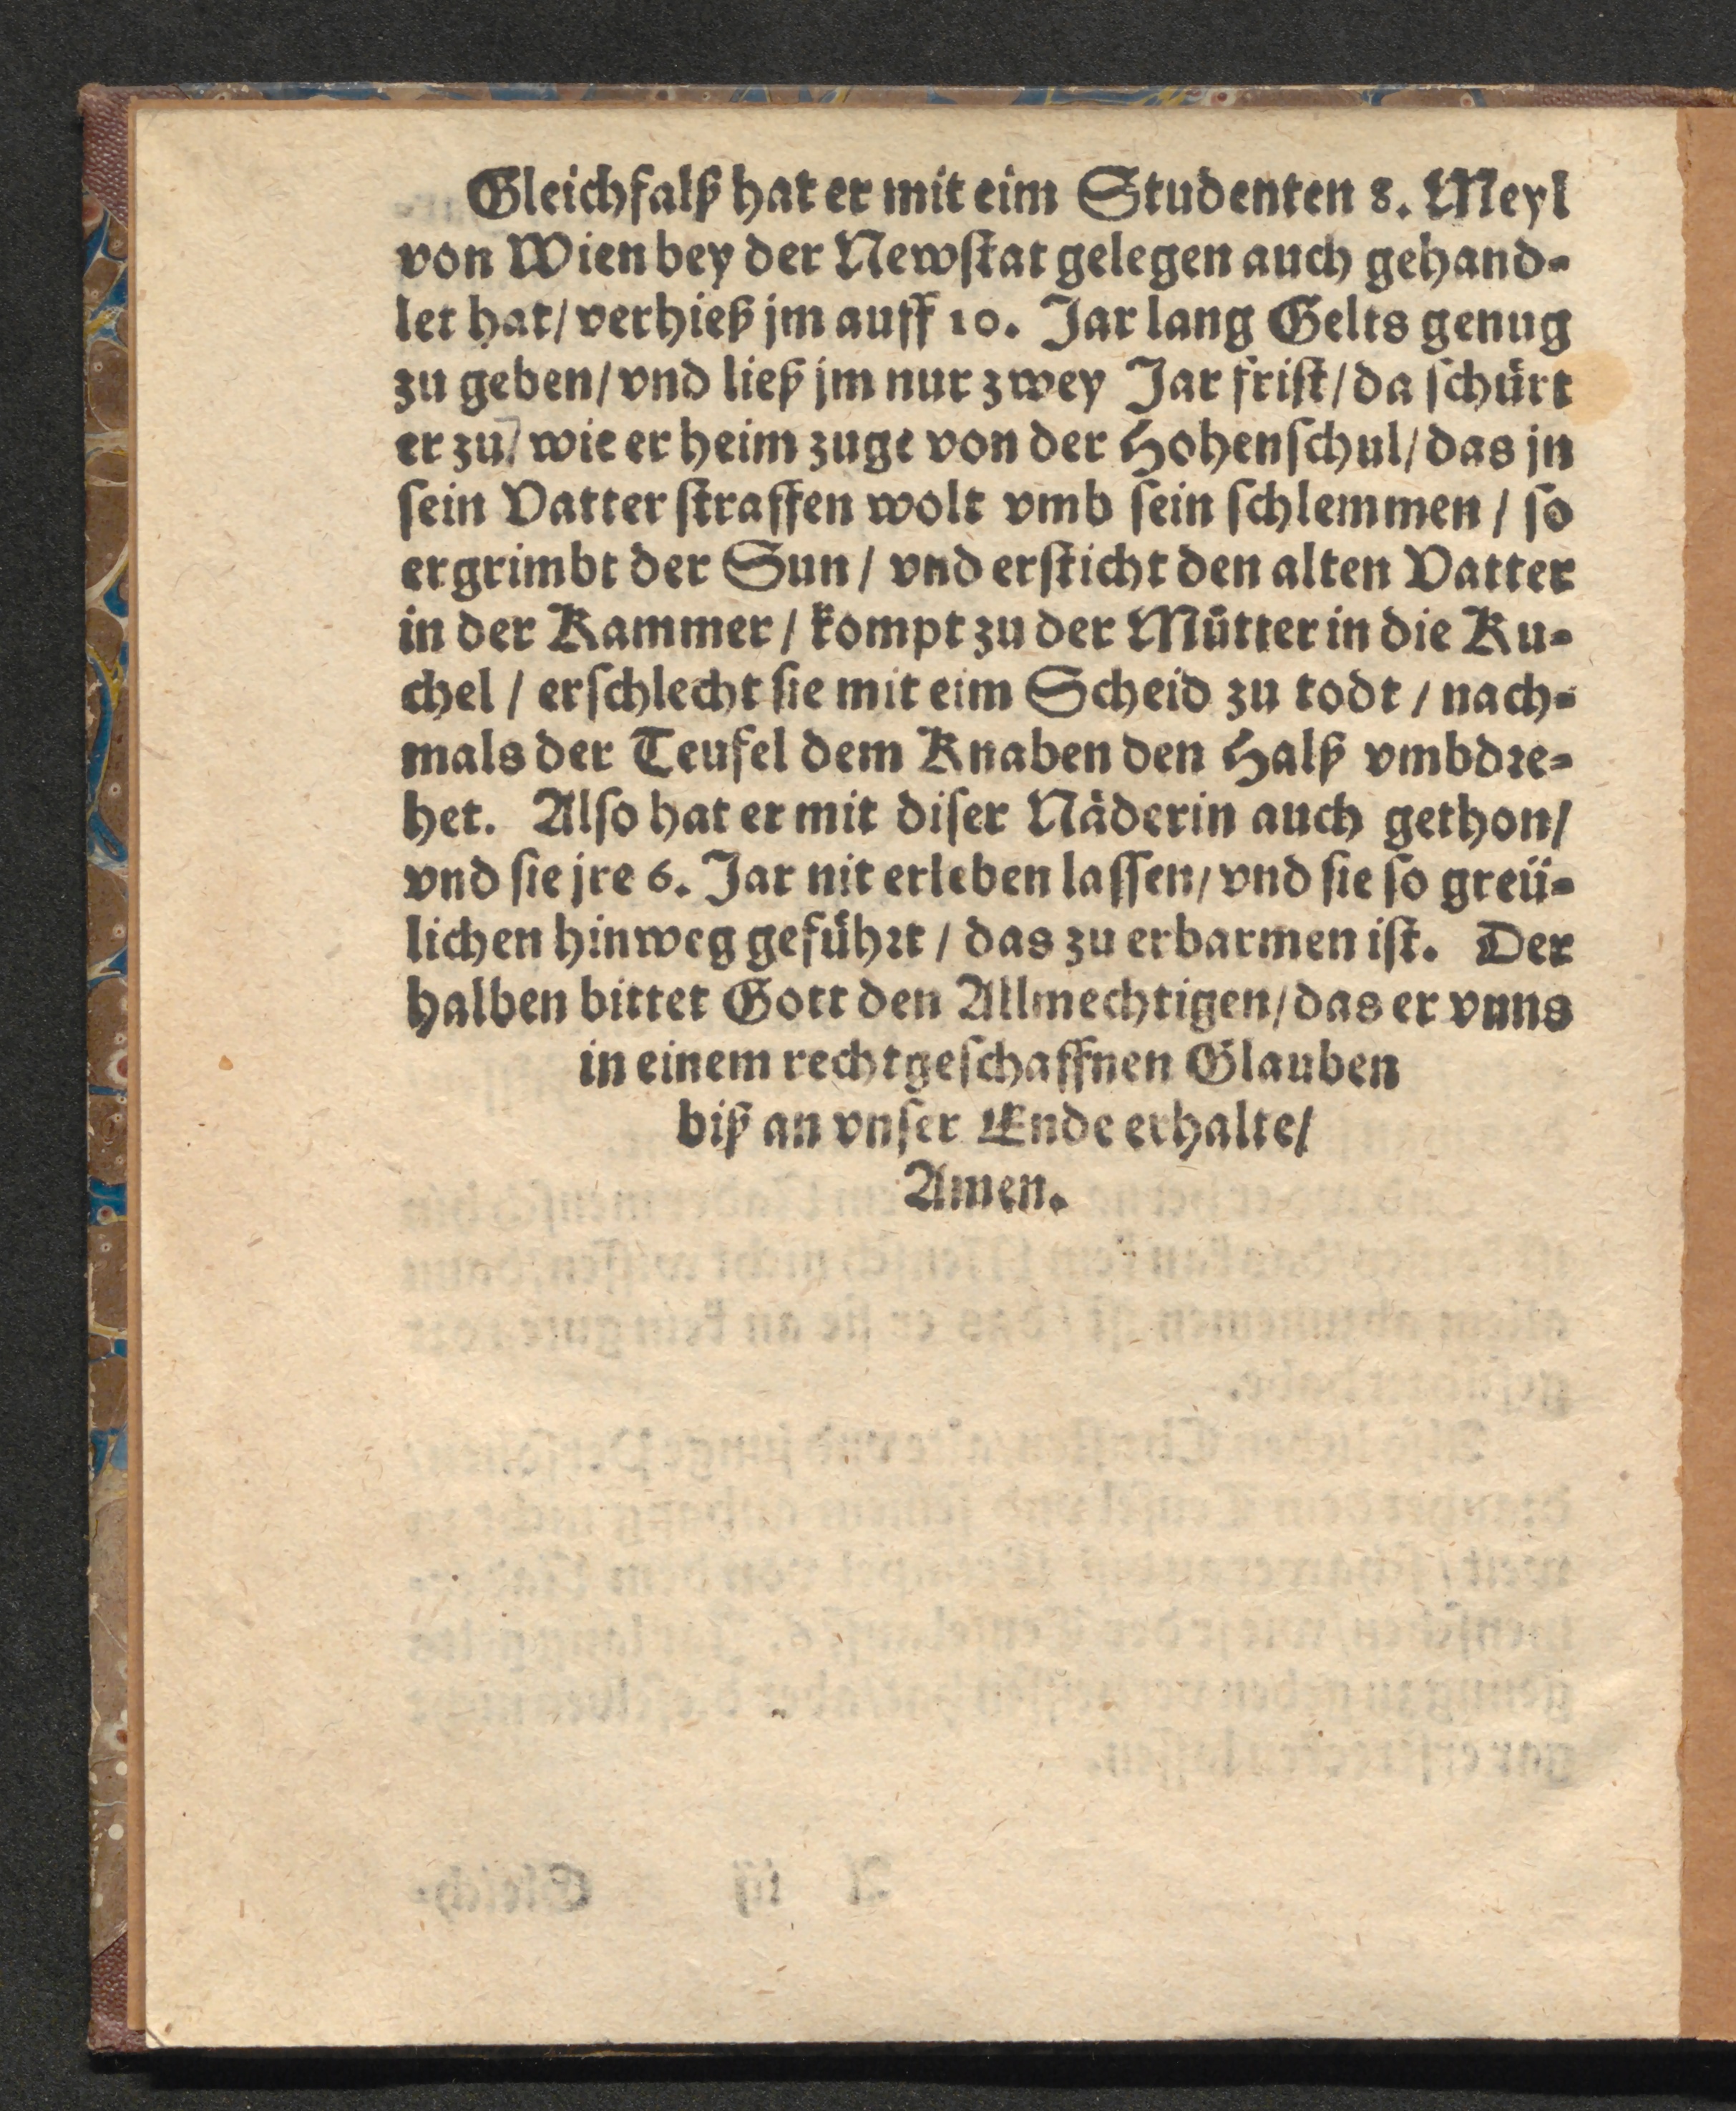 Gleichfalß hat er mit eim Studenten 8. Meyl
von Wien bey der Newſtat gelegen auch gehand⸗
let hat/ verhieß jm auff 10. Jar lang Gelts genug
zu geben/ vnd ließ jm nur zwey Jar friſt/ da ſchürt
er zu/ wie er heim zuge von der Hohenſchul/ das jn
ſein Vatter ſtraffen wolt vmb ſein ſchlemmen / ſo
ergrimbt der Sun / vnd erſticht den alten Vatter
in der Kammer / kompt zu der Mütter in die Ku⸗
chel / erſchlecht ſie mit eim Scheid zu todt / nach⸗
mals der Teufel dem Knaben den Halß vmbdꝛe⸗
het. Alſo hat er mit diſer Näderin auch gethon/
vnd ſie jre 6. Jar nit erleben laſſen/ vnd ſie ſo greü⸗
lichen hinweg gefühꝛt / das zu erbarmen iſt. Der
halben bittet Gott den Allmechtigen/ das er vnns
in einem rechtgeſchaffnen Glauben
biß an vnſer Ende erhalte/
Amen.